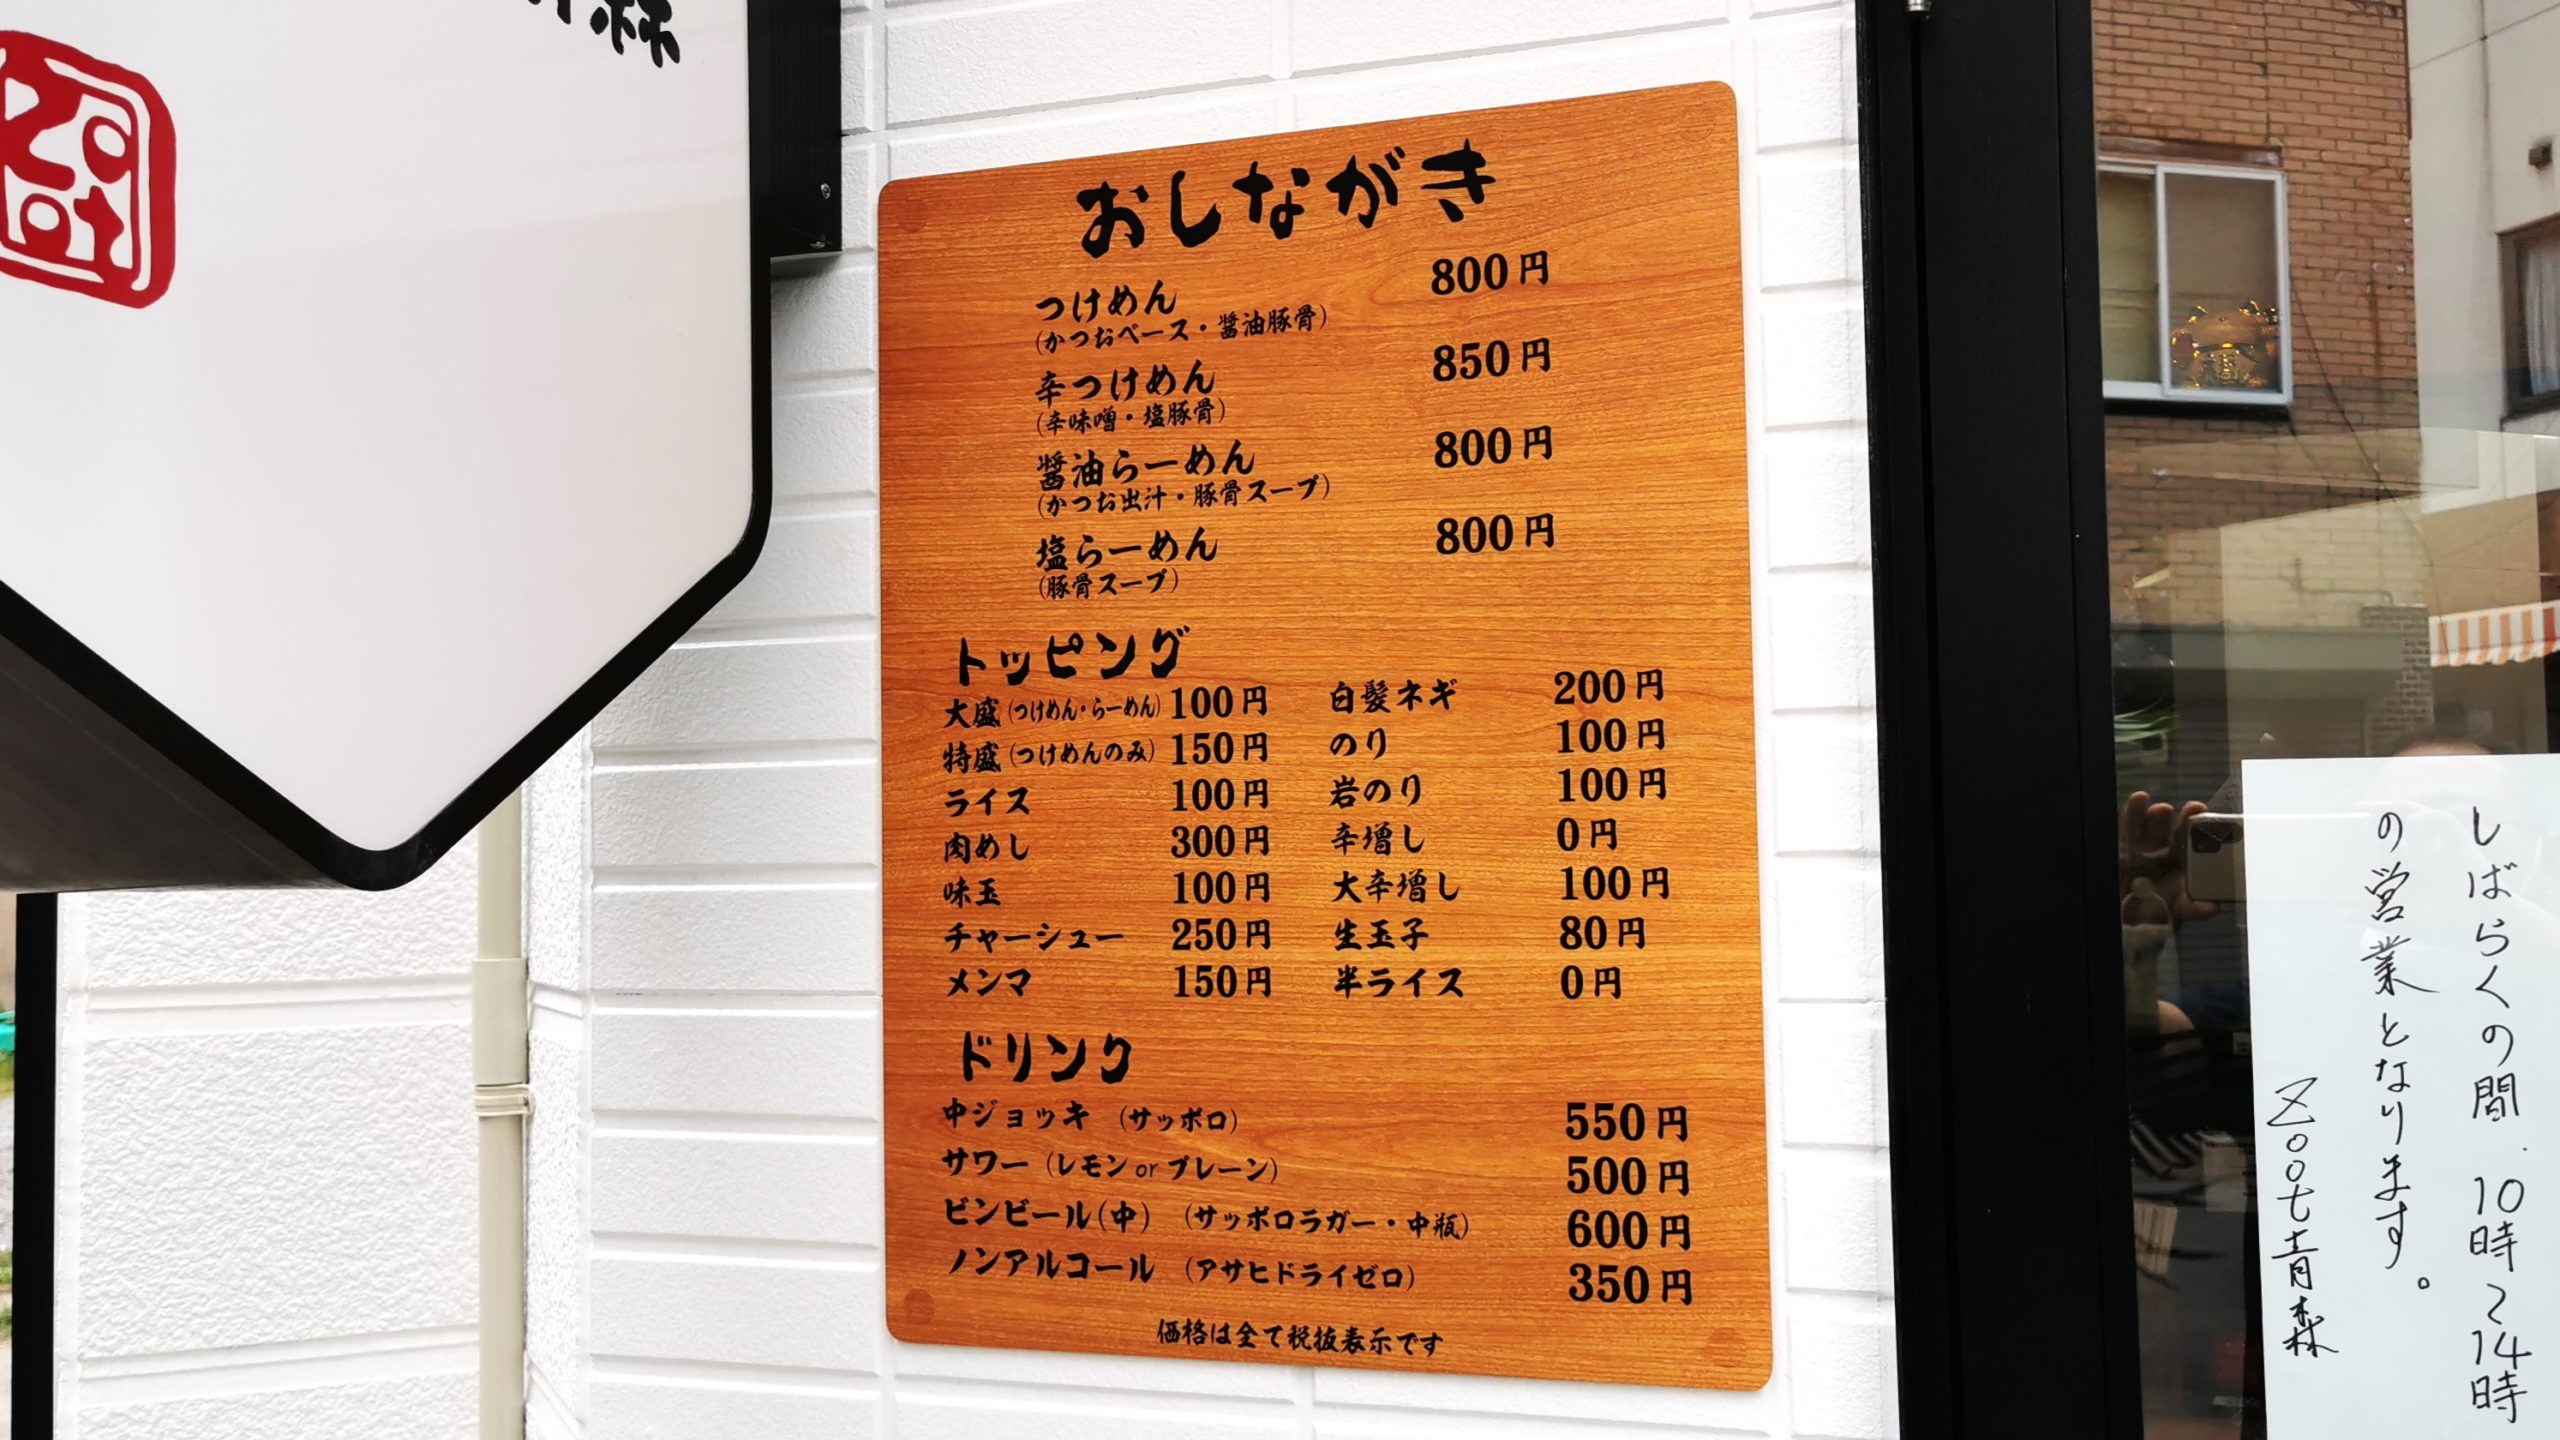 おしながき
つけめん 800円
(かつおベース・醤油豚骨)
辛つけめん 850円
(辛味噌・塩豚骨)
醤油らーめん 800円
(かつお出汁・豚骨スープ)
塩らーめん 800円
(豚骨スープ)
トッピング
大盛(つけめん・らーめん) 100円
特盛(つけめんのみ) 150円
ライス 100円
肉めし 300円
味玉 100円
チャーシュー 250円
メンマ 150円
白髪ネギ 200円
のり 100円
岩のり 100円
辛増し 0円
大辛増し 100円
生玉子 80円
半ライス 0円
ドリンク
中ジョッキ (サッポロ) 550円
サワー (レモン or プレーン) 500円
ビンビール(中) (サッポロラガー・中瓶) 600円
ノンアルコール (アサヒドライゼロ) 350円
価格は全て税抜表示です
しばらくの間、10時～14時
の営業となります。
Zoot青森